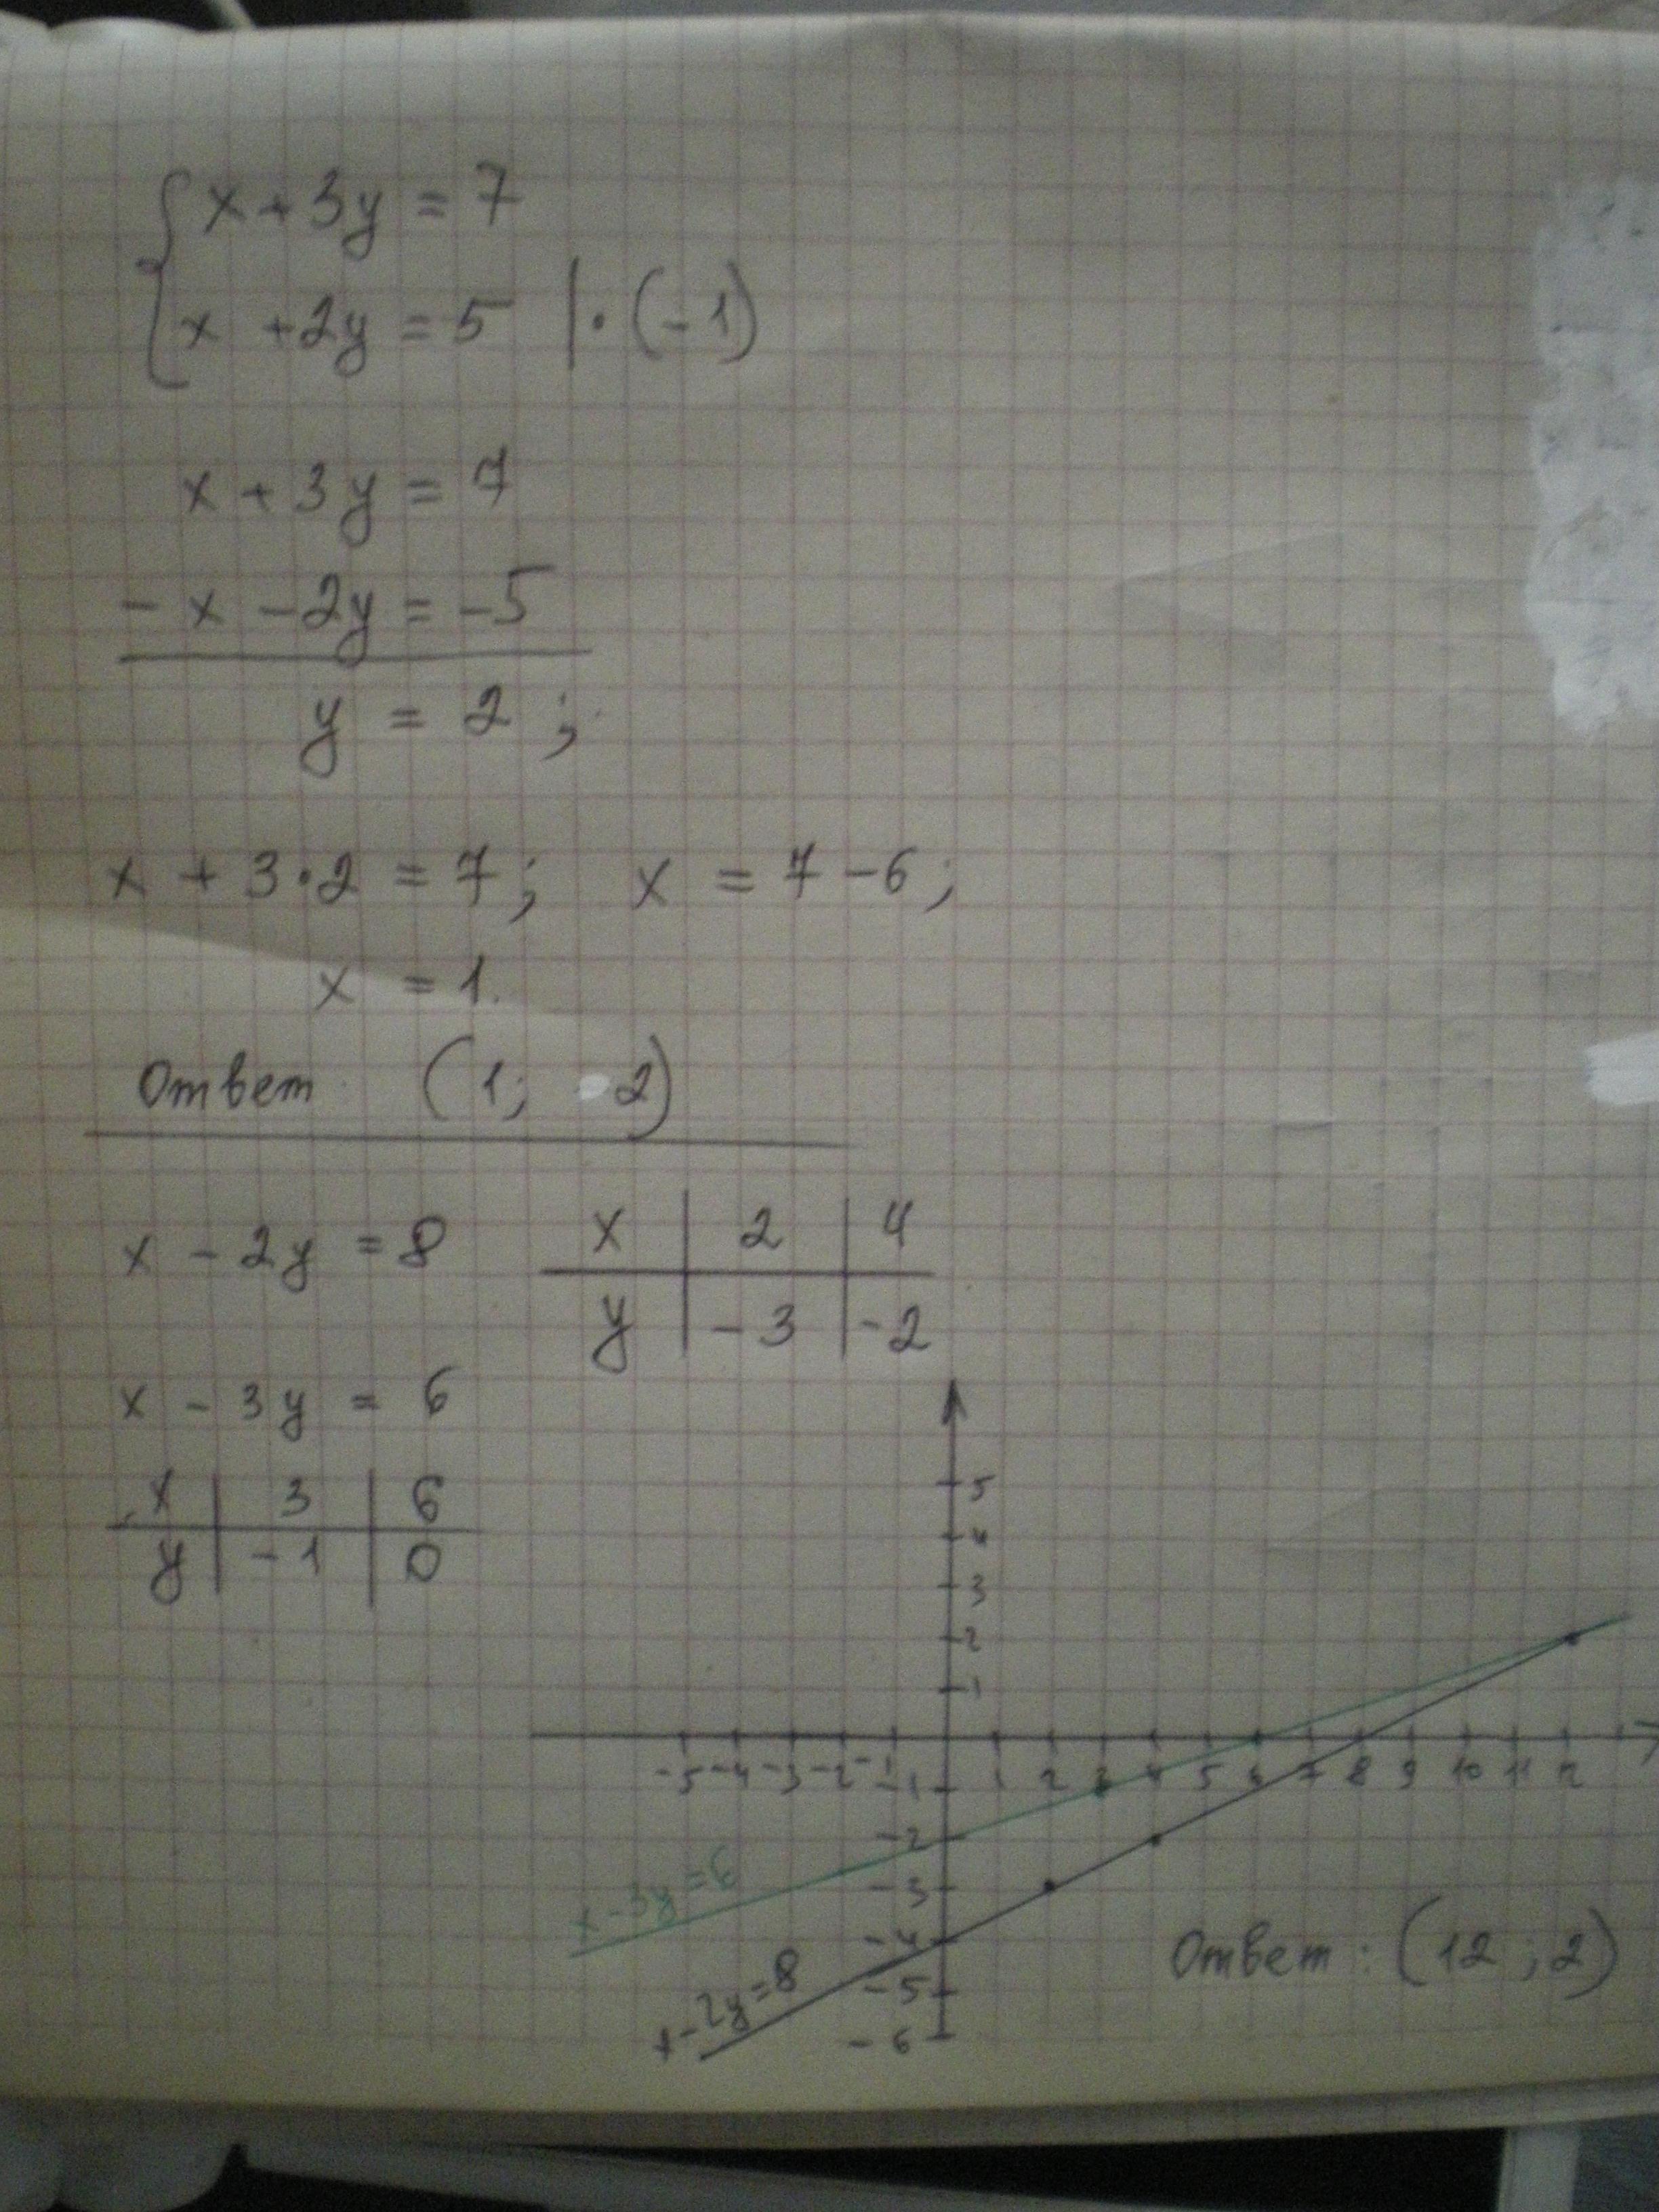 x + 3y = 7
x + 2y = 5 | · (-1)
x + 3y = 7
- x - 2y = -5
y = 2 ;
x + 3 · 2 = 7 ; x = 7 - 6 ;
x = 1.
Ответ (1; 2)
x - 2y = 8
x 2 4
y -3 -2
x - 3y = 6
x 3 6
y -1 0
5
4
3
2
1
-5 -4 -3 -2 -1 1 2 3 4 5 6 7 8 9 10 11 12
-1
-2
-3
-4
-5
-6
x - 3y = 6
x - 2y = 8
Ответ : (12 ; 2)